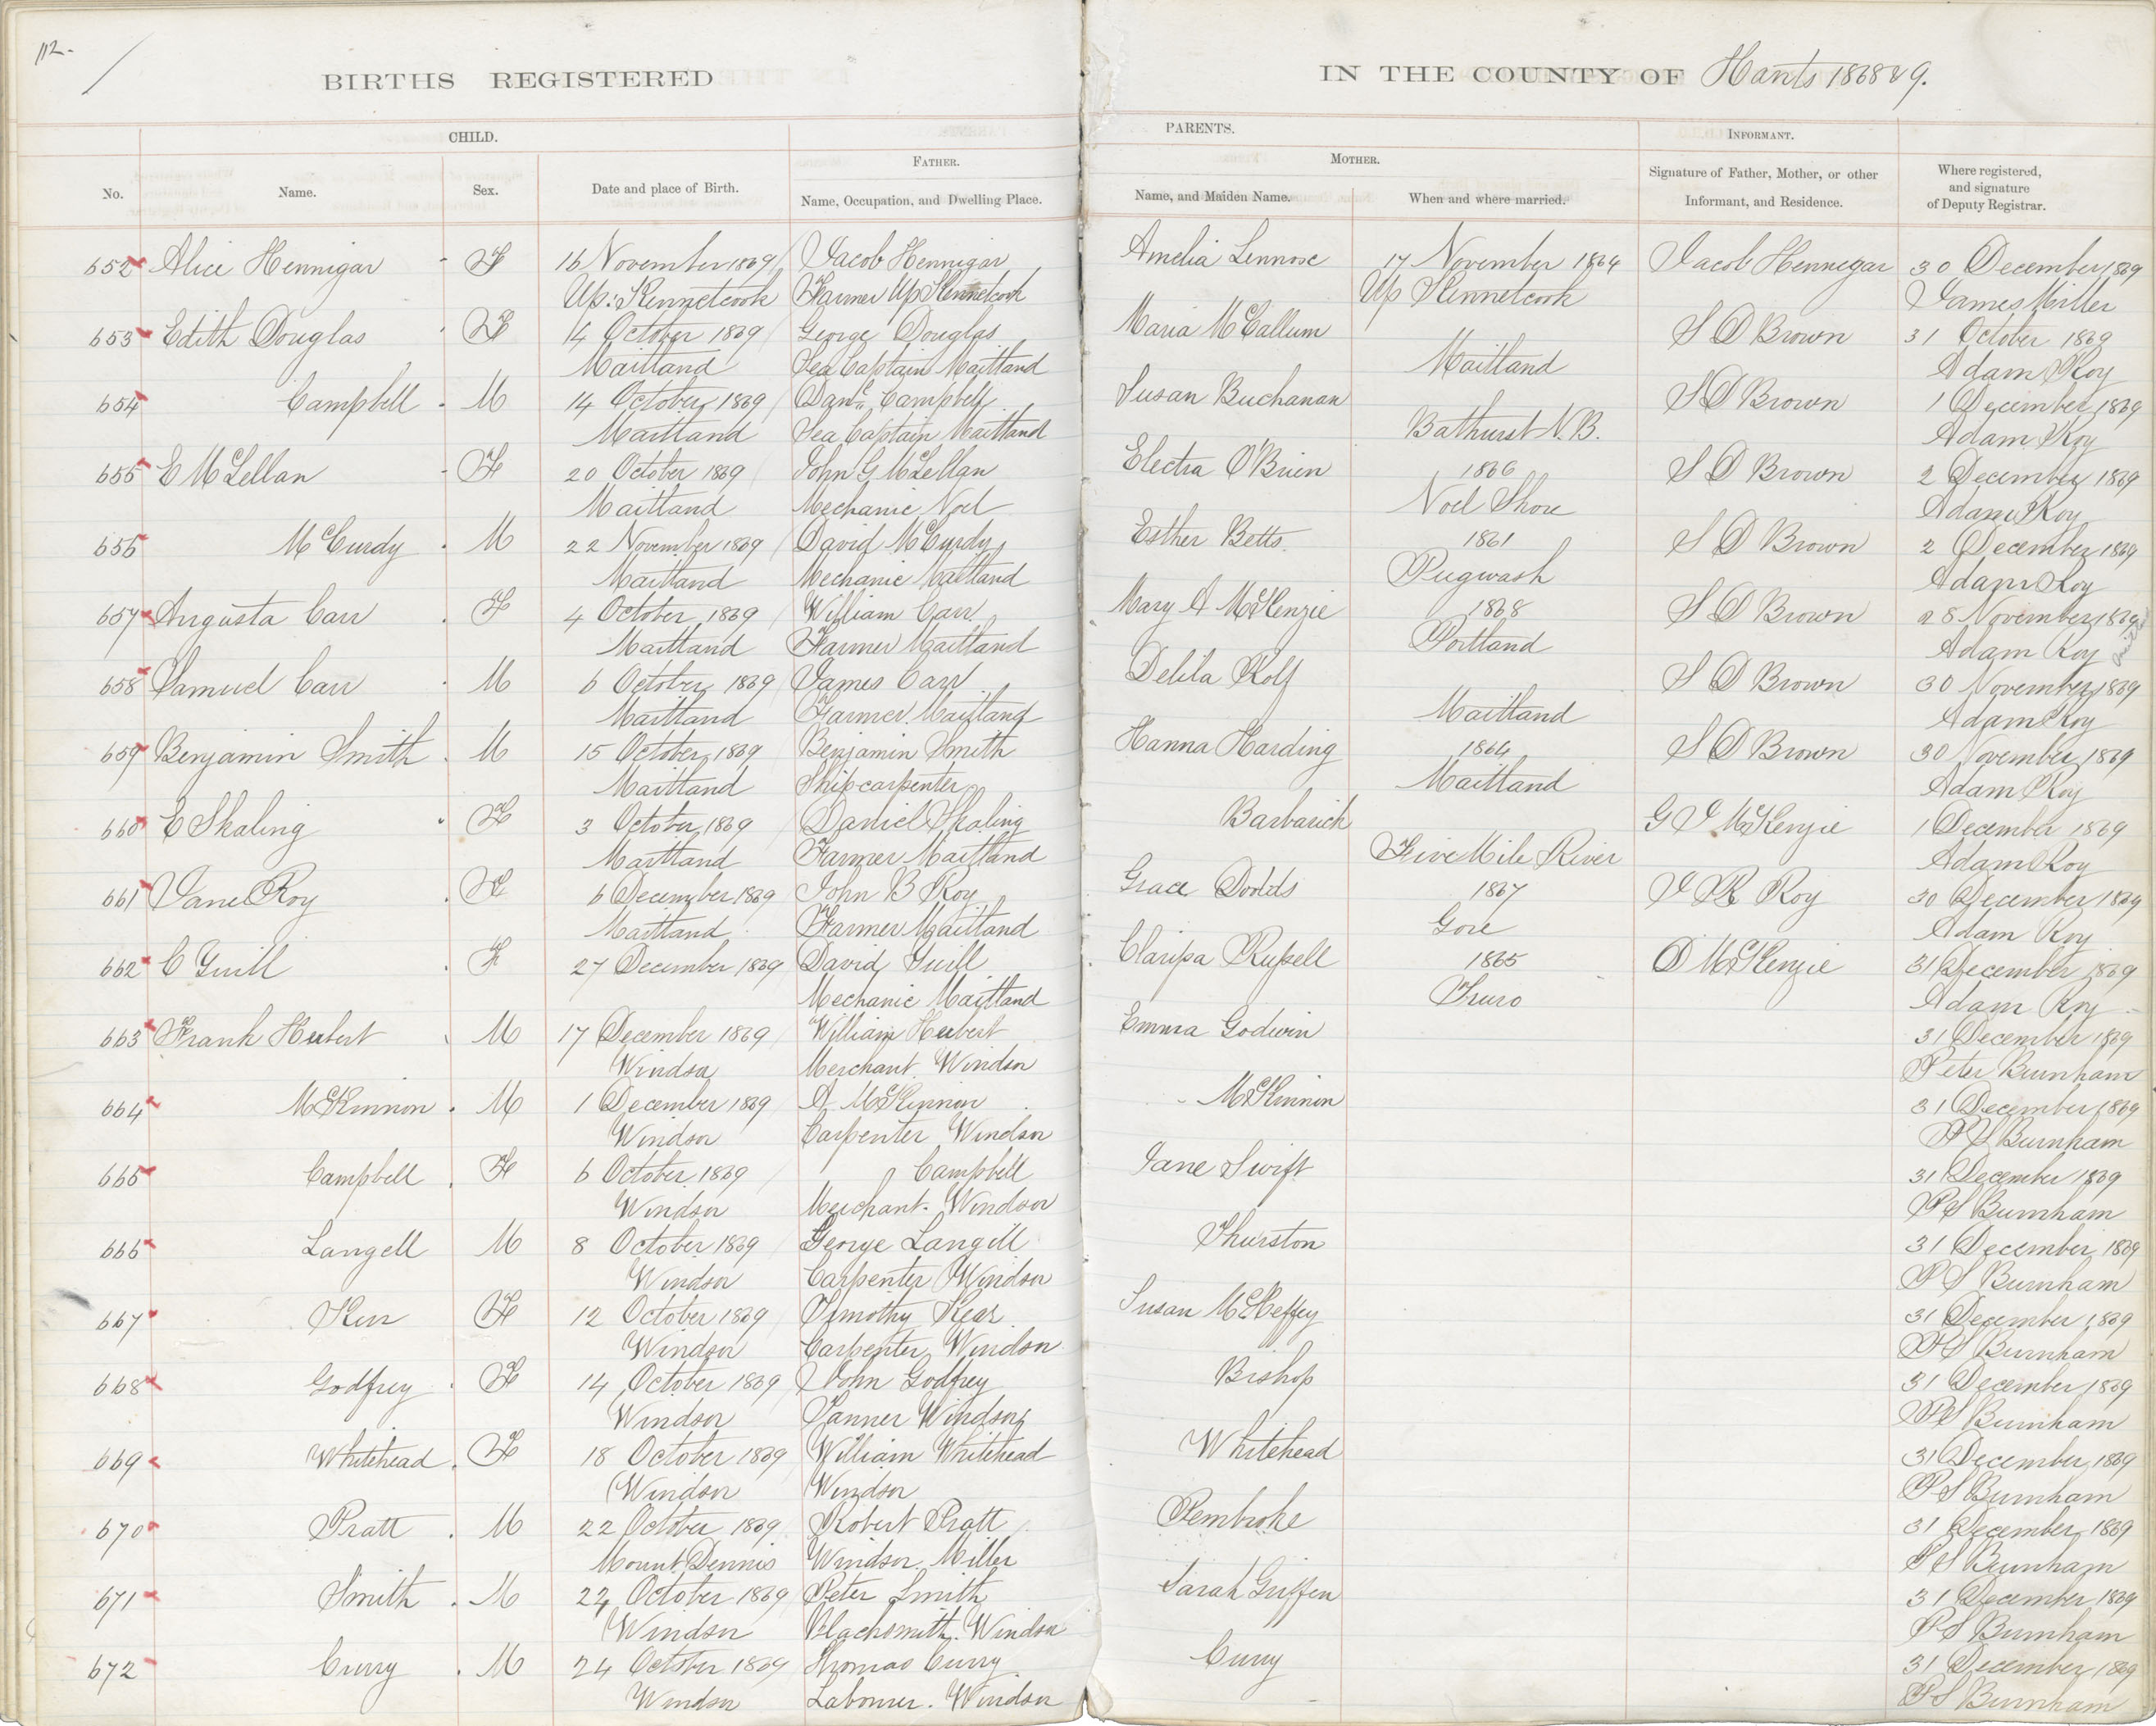 112.
BIRTHS REGISTERED IN THE COUNTY OF Hants 1868 & 9.
CHILD. PARENTS. INFORMANT.
No. Name. Sex. Date and place of Birth. FATHER. Name, Occupation, and Dwelling Place. MOTHER. Name, and Maiden Name. When and where married. Signature of Father, Mother, or other Informant, and Residence. Where registered, and signature of Deputy Registrar.
652 Alice Hennigar F 16 November 1869 Jacob Hennigar Amelia Lennox 17 November 1864 Jacob Hennegar 30 December 1869
Up: Kennetcook Farmer Up Kennetcook Up Kennetcook James Miller
653 Edith Douglas F 14 October 1869 George Douglas Maria McCallum S D Brown 31 October 1869
Maitland Sea Captain Maitland Maitland Adam Roy
654 Campbell M 14 October 1869 Danl. Campbell Susan Buchanan S D Brown 1 December 1869
Maitland Sea Captain Maitland Bathurst N.B. Adam Roy
655 E McLellan F 20 October 1869 John G McLellan Electra O'Brien 1866 S D Brown 2 December 1869
Maitland Mechanic Noel Noel Shore Adam Roy
656 McCurdy M 22 November 1869 David McCurdy Esther Betts 1861 S D Brown 2 December 1869
Maitland Mechanic Maitland Pugwash Adam Roy
657 Augusta Carr F 4 October 1869 William Carr Mary A McKenzie 1868 S D Brown 28 November 1869
Maitland Farmer Maitland Portland Adam Roy
658 Samuel Carr M 6 October 1869 James Carr Delila Rolf S D Brown 30 November 1869
Maitland Farmer Maitland Maitland Adam Roy
659 Benjamin Smith M 15 October 1869 Benjamin Smith Hanna Harding 1864 S D Brown 30 November 1869
Maitland Ship carpenter Maitland Adam Roy
660 E Skaling F 3 October 1869 Daniel Skaling Barbarick G J McKenzie 1 December 1869
Maitland Farmer Maitland Five Mile River Adam Roy
661 Jane Roy F 6 December 1869 John B Roy Grace Dodds 1867 J R Roy 30 December 1869
Maitland Farmer Maitland Gore Adam Roy
662 C Guill F 27 December 1869 David Guill Clarissa Russell 1865 D McKenzie 31 December 1869
Mechanic Maitland Truro Adam Roy
663 Frank Hubert M 17 December 1869 William Hubert Emma Godwin 31 December 1869
Windsor Merchant Windsor Peter Burnham
664 McKinnon M 1 December 1869 A McKinnon McKinnon 31 December 1869
Windsor Carpenter Windsor P S Burnham
665 Campbell F 6 October 1869 Campbell Jane Swift 31 December 1869
Windsor Merchant. Windsor P S Burnham
666 Langell M 8 October 1869 George Langill Thurston 31 December 1869
Windsor Carpenter Windsor P S Burnham
667 Kerr F 12 October 1869 Timothy Kear Susan McHeffey 31 December 1869
Windsor Carpenter Windsor P S Burnham
668 Godfrey F 14 October 1869 John Godfrey Bishop 31 December 1869
Windsor Tanner Windsor P S Burnham
669 Whitehead F 18 October 1869 William Whitehead Whitehead 31 December 1869
Windsor Windsor P S Burnham
670 Pratt M 22 October 1869 Robert Pratt Pembroke 31 December 1869
Mount Dennis Windsor Miller P S Burnham
671 Smith M 22 October 1869 Peter Smith Sarah Griffen 31 December 1869
Windsor Blacksmith. Windsor P S Burnham
672 Curry M 24 October 1869 Thomas Curry Curry 31 December 1869
Windsor Labourer. Windsor P S Burnham